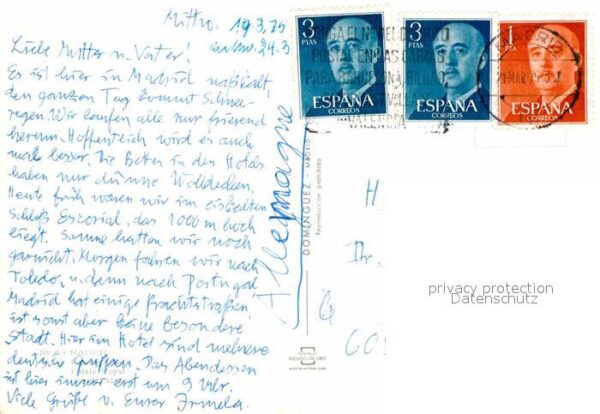 Mittw. 19.3.75
ank. 24.3.
Liebe Mutter u. Vater!
Es ist hier in Madrid naßkalt,
den ganzen Tag kommt Schnee-
regen. Wir laufen alle nur frierend
herum. Hoffentlich wird es auch
mal besser. Die Betten in den Hotels
haben nur dünne Wolldecken.
Heute früh waren wir im eiskalten
Schloß Escorial, das 1000 m hoch
liegt. Sonne hatten wir noch
garnicht. Morgen fahren wir nach
Toledo, u. dann nach Portugal
Madrid hat einige Prachtstraßen
ist sonst aber keine besondere
Stadt. Hier im Hotel sind mehrere
deutsche Gruppen. Das Abendessen
ist hier immer erst um 9 Uhr.
Viele Grüße v. Eurer Irmela.
Allemagne
DOMINGUEZ - MADRID
Reproduccion prohibida
POSTALES
ESCUDO DE ORO
3
PTAS
ESPAÑA
CORREOS
3
PTAS
ESPAÑA
CORREOS
1
PTA
ESPAÑA
CORREOS
PARA BARCELONA, BILBAO
VALENCIA
MADRID
H
Ihr.
60
privacy protection
Datenschutz